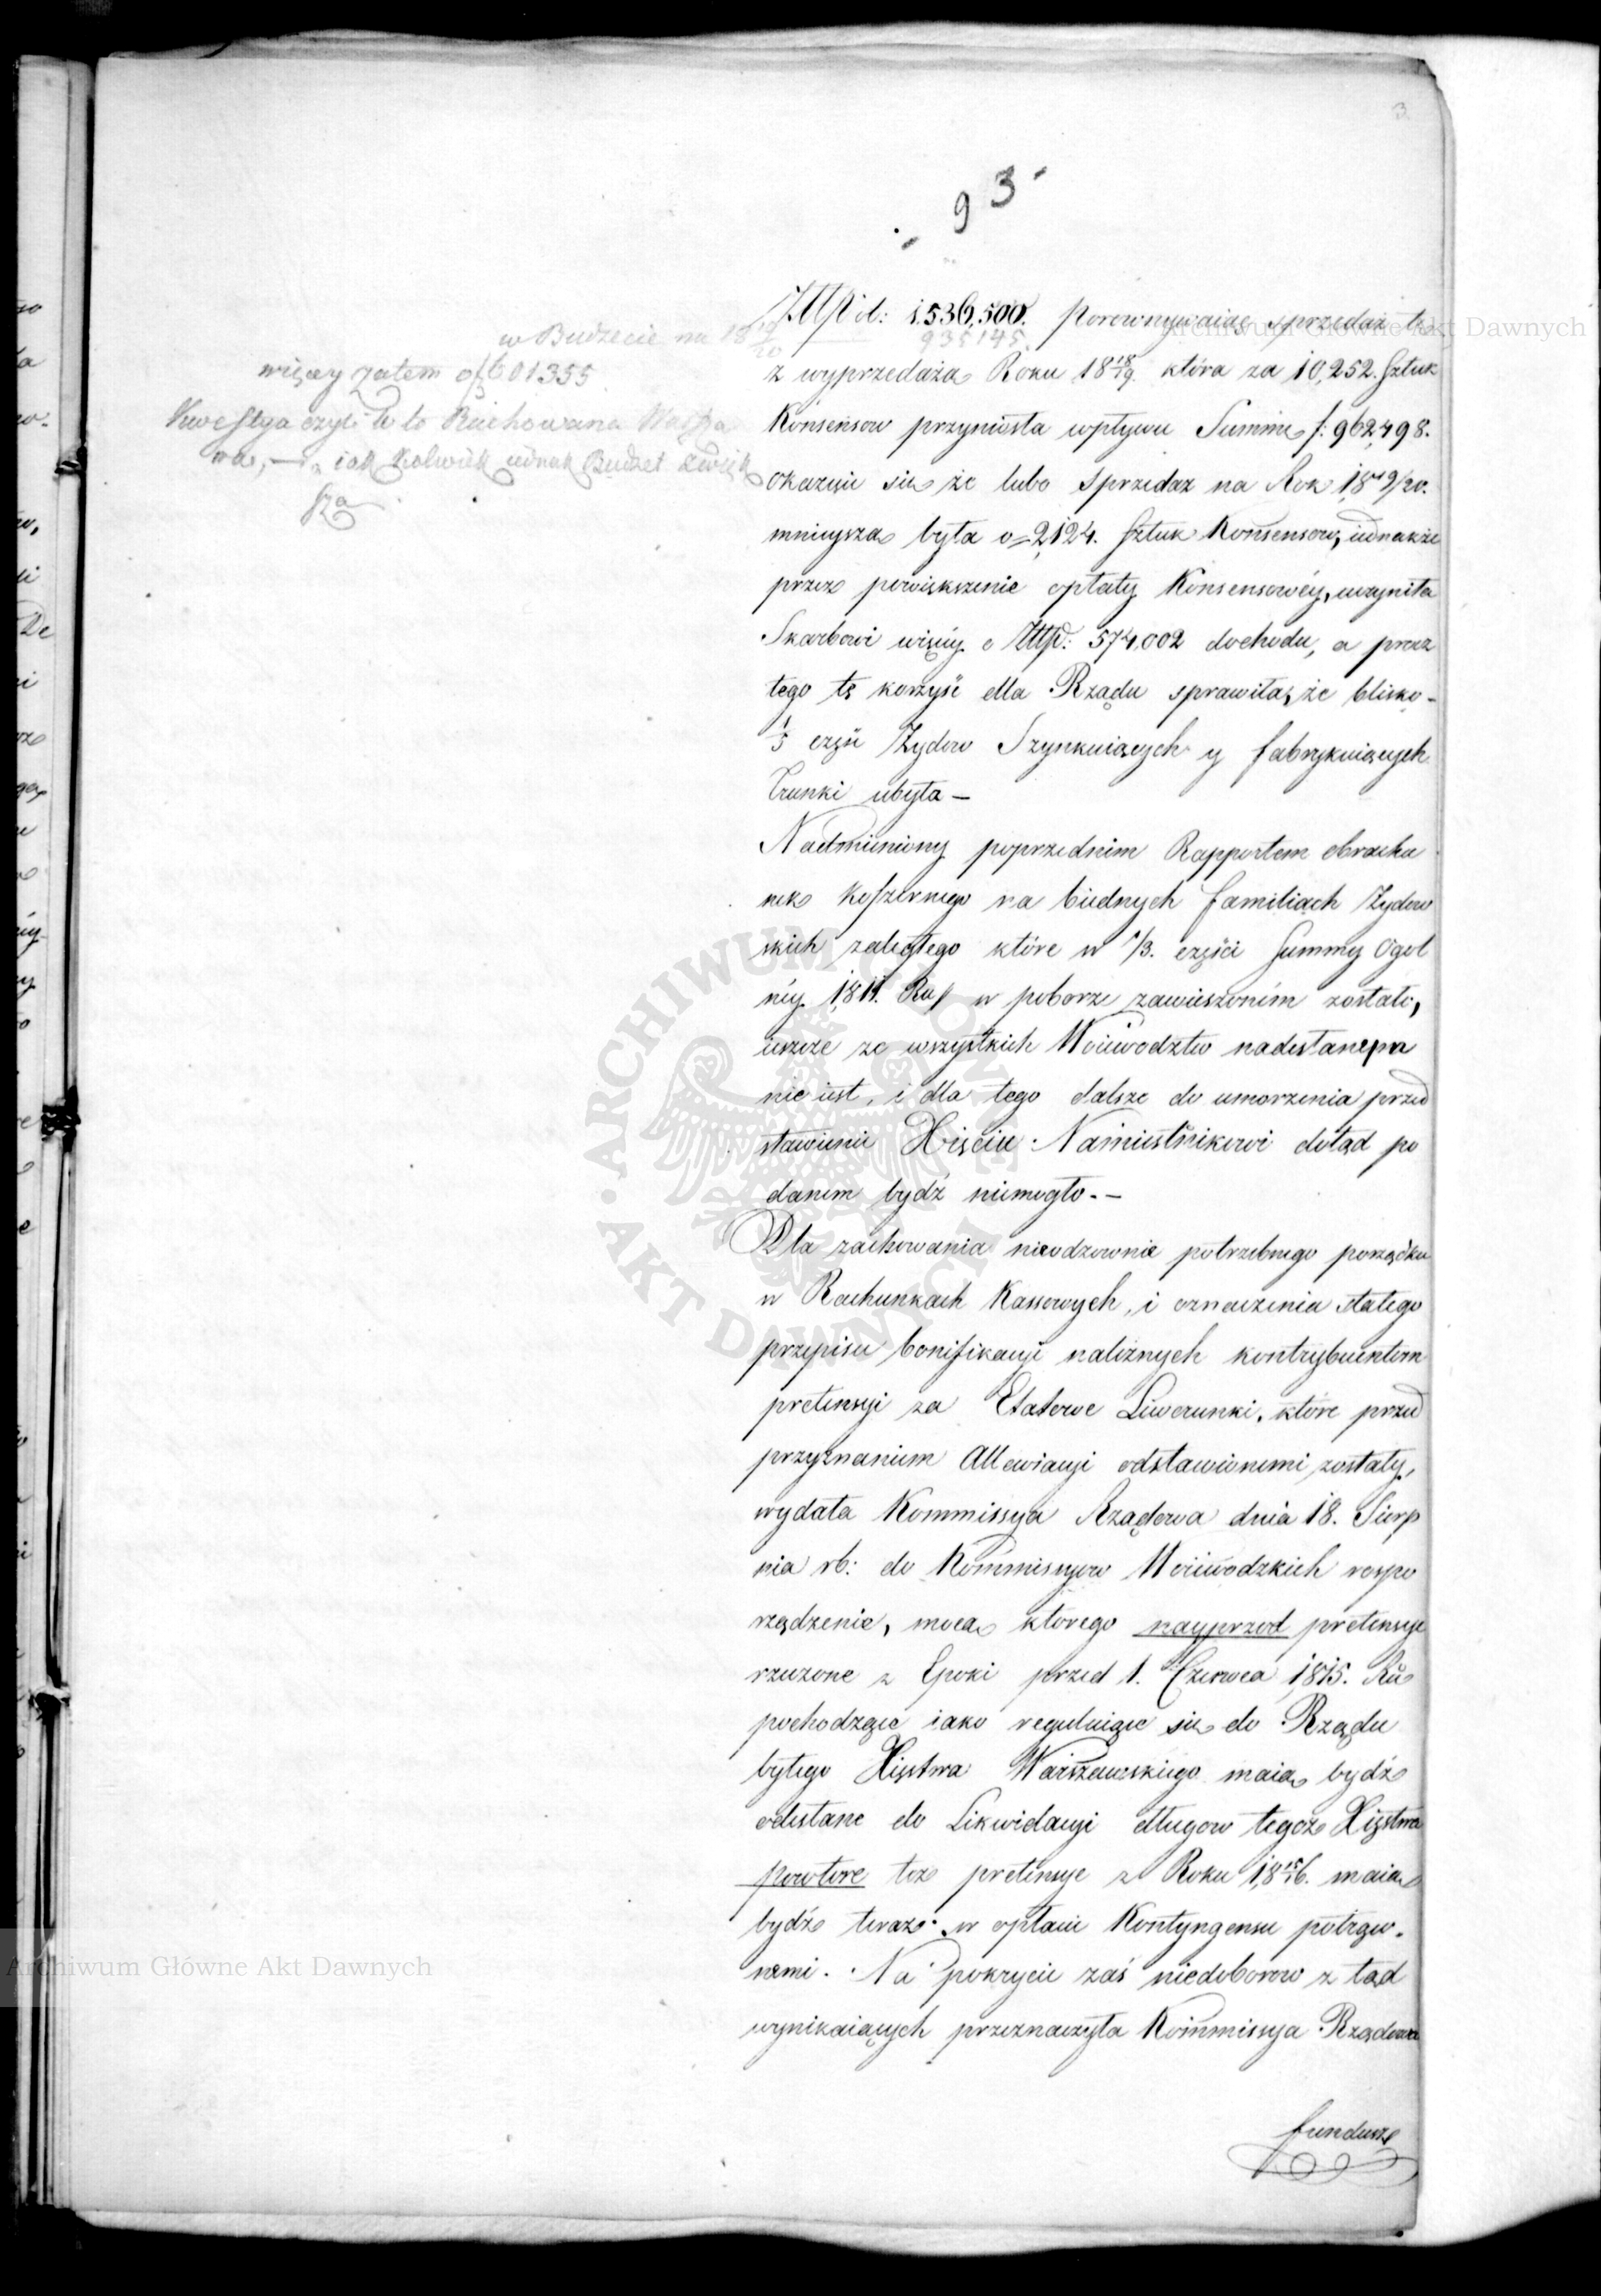 3.
93
w Budżecie na 18 19/20
935145.
więcey zatem o f 601355
Kwestya czyli to to Rachowane
iak kolwiek iednak Budżet zwięk
sza
Złł. pol: 1,536,500. porownywaiąc sprzedaż tę
z wyprzedażą Roku 18 18/19. która za 10,252. sztuk
Konsensow przyniosła wpływu Summę f: 962,498.
okazuie się że lubo sprzedaż na Rok 18 19/20.
mnieysza była o 2,124. sztuk Konsensow, iednakże
przez powiększenie opłaty Konsensowéy, uczyniła
Skarbowi więcéy o Złłp: 574,002 dochodu, a przez
tego tę korzyść dla Rządu sprawiła, że blisko
1/3 część Żydow Szynkuiących y fabrykuiących
Trunki ubyła —
Nadmieniony poprzednim Rapportem obrachu
nek koszernego na biednych familiach Żydow
skich zaległego które w 1/3. części Summy Ogol
néy 1811. Ru w poborze zawieszoném zostało,
ieszcze ze wszystkich Woiewodztw nadesłanym
nie iest, i dla tego dalsze do umorzenia przed
stawienie Xięciu Namiestnikowi dotąd po
danem bydź niemogło. —
Dla zachowania nieodzownie potrzebnego porządku
w Rachunkach Kassowych, i oznaczenia stałego
przepisu bonifikacyi należnych kontrybuentom
pretensyi za Etatowe Liwerunki, które przed
przyznaniem Allewiacyi odstawionemi zostały,
wydała Kommissya Rządowa dnia 18. Sierp
nia rb: do Kommissyow Woiewodzkich rospo
rządzenie, mocą ktorego nayprzod pretensye
rzeczone z Epoki przed 1. Czerwca 1815. Ru
pochodzące iako reguluiące się do Rządu
byłego Xięstwa Warszawskiego maią bydź
odesłane do Likwidacyi długow tegoż Xięstwa
powtore też pretensye z Roku 18 15/16. maią
bydź teraz w opłacie Kontyngensu potrąco-
nemi. Na pokrycie zaś niedoborow z tąd
wynikaiących przeznaczyła Kommissya Rządowa
fundusze
Archiwum Główne Akt Dawnych
Archiwum Główne Akt Dawnych
ARCHIWUM GŁÓWNE AKT DAWNYCH